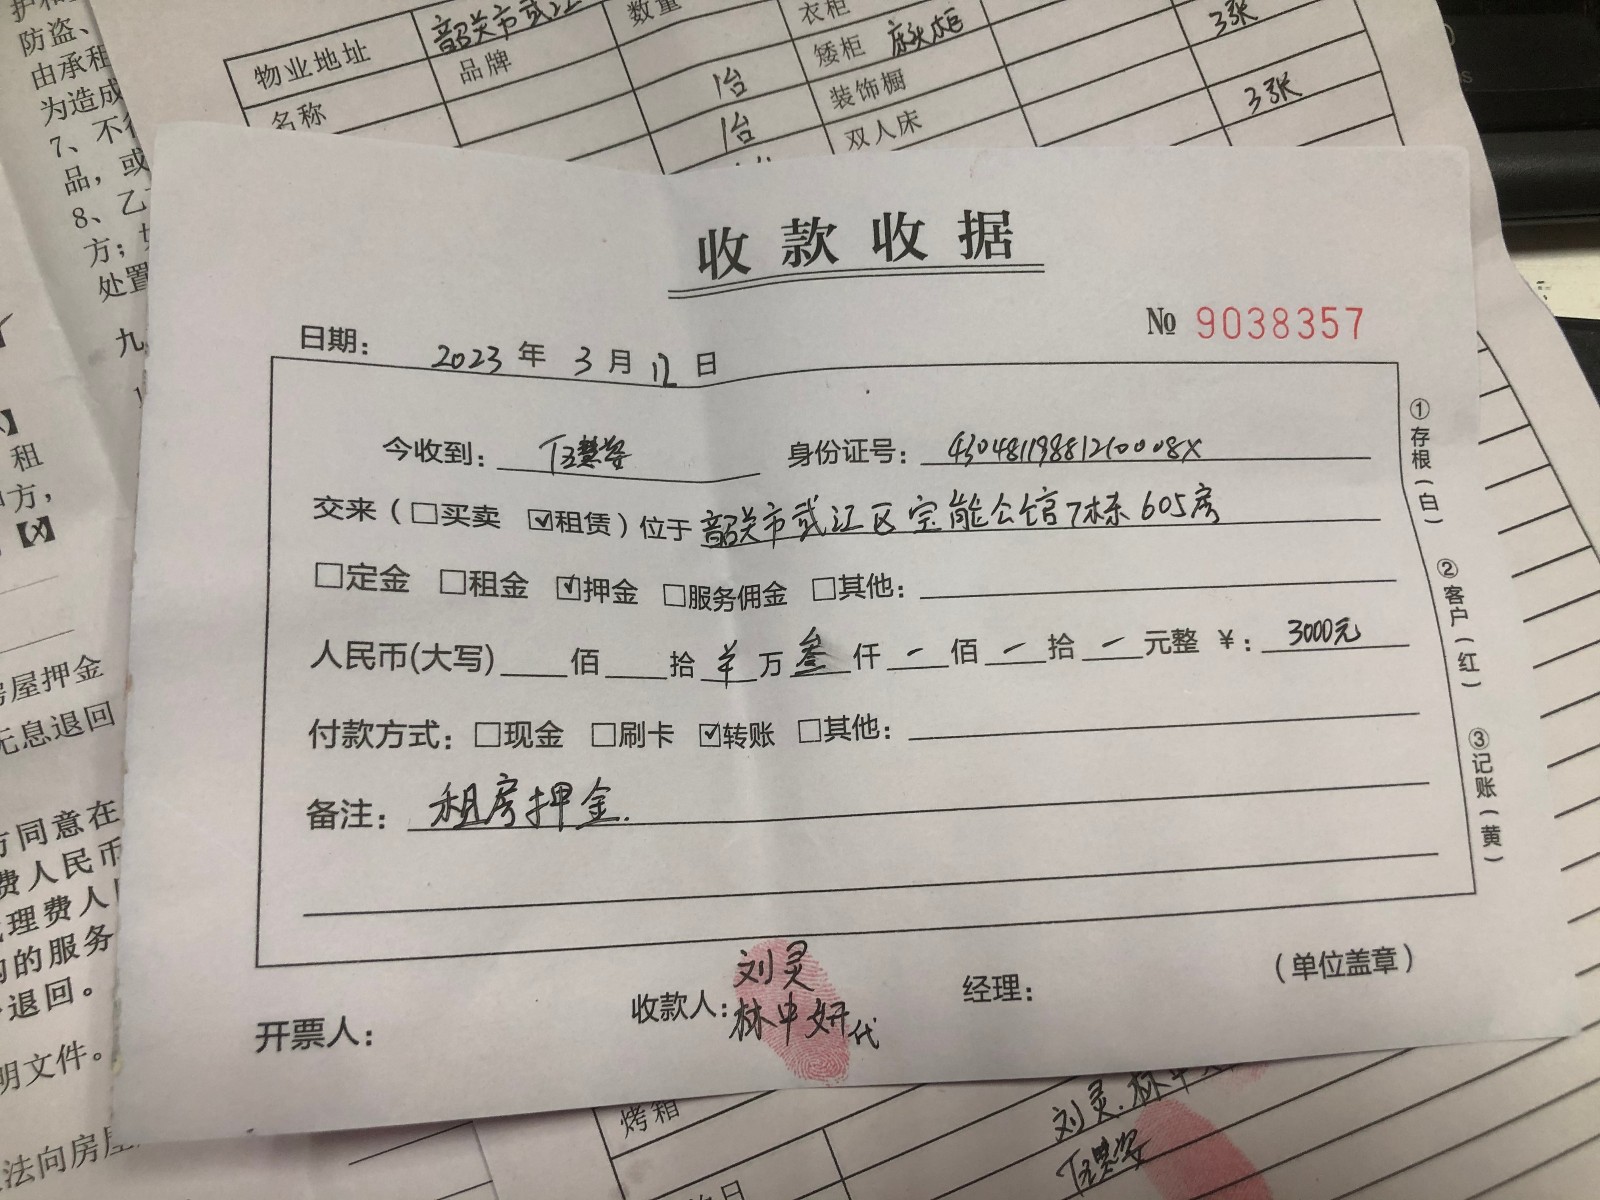 护和
防盗、
由承租
为造成
7、不
品，或
8、乙
方；
处置
九
物业地址 韶关市武江
数量
衣柜
3张
名称
品牌
1台
矮柜 床头柜
1台
装饰橱
3张
双人床
收款收据
№ 9038357
日期： 2023 年 3 月 12 日
今收到： 伍慧姿 身份证号： 43048119881210008X
交来（□买卖 ☑租赁）位于 韶关市武江区宝能公馆7栋605房
□定金 □租金 ☑押金 □服务佣金 □其他：
人民币(大写) 佰 拾 羊 万 叁 仟 一 佰 一 拾 一 元整 ¥： 3000元
付款方式： □现金 □刷卡 ☑转账 □其他：
备注： 租房押金.
①存根（白）
②客户（红）
③记账（黄）
开票人：
收款人： 刘灵
林中妍代
经理：
（单位盖章）
租
方，
【X】
房屋押金
无息退回
方同意在
费人民币
理费人
的服务
退回。
明文件。
法向房屋
烤箱
刘灵.林中
伍慧姿
日